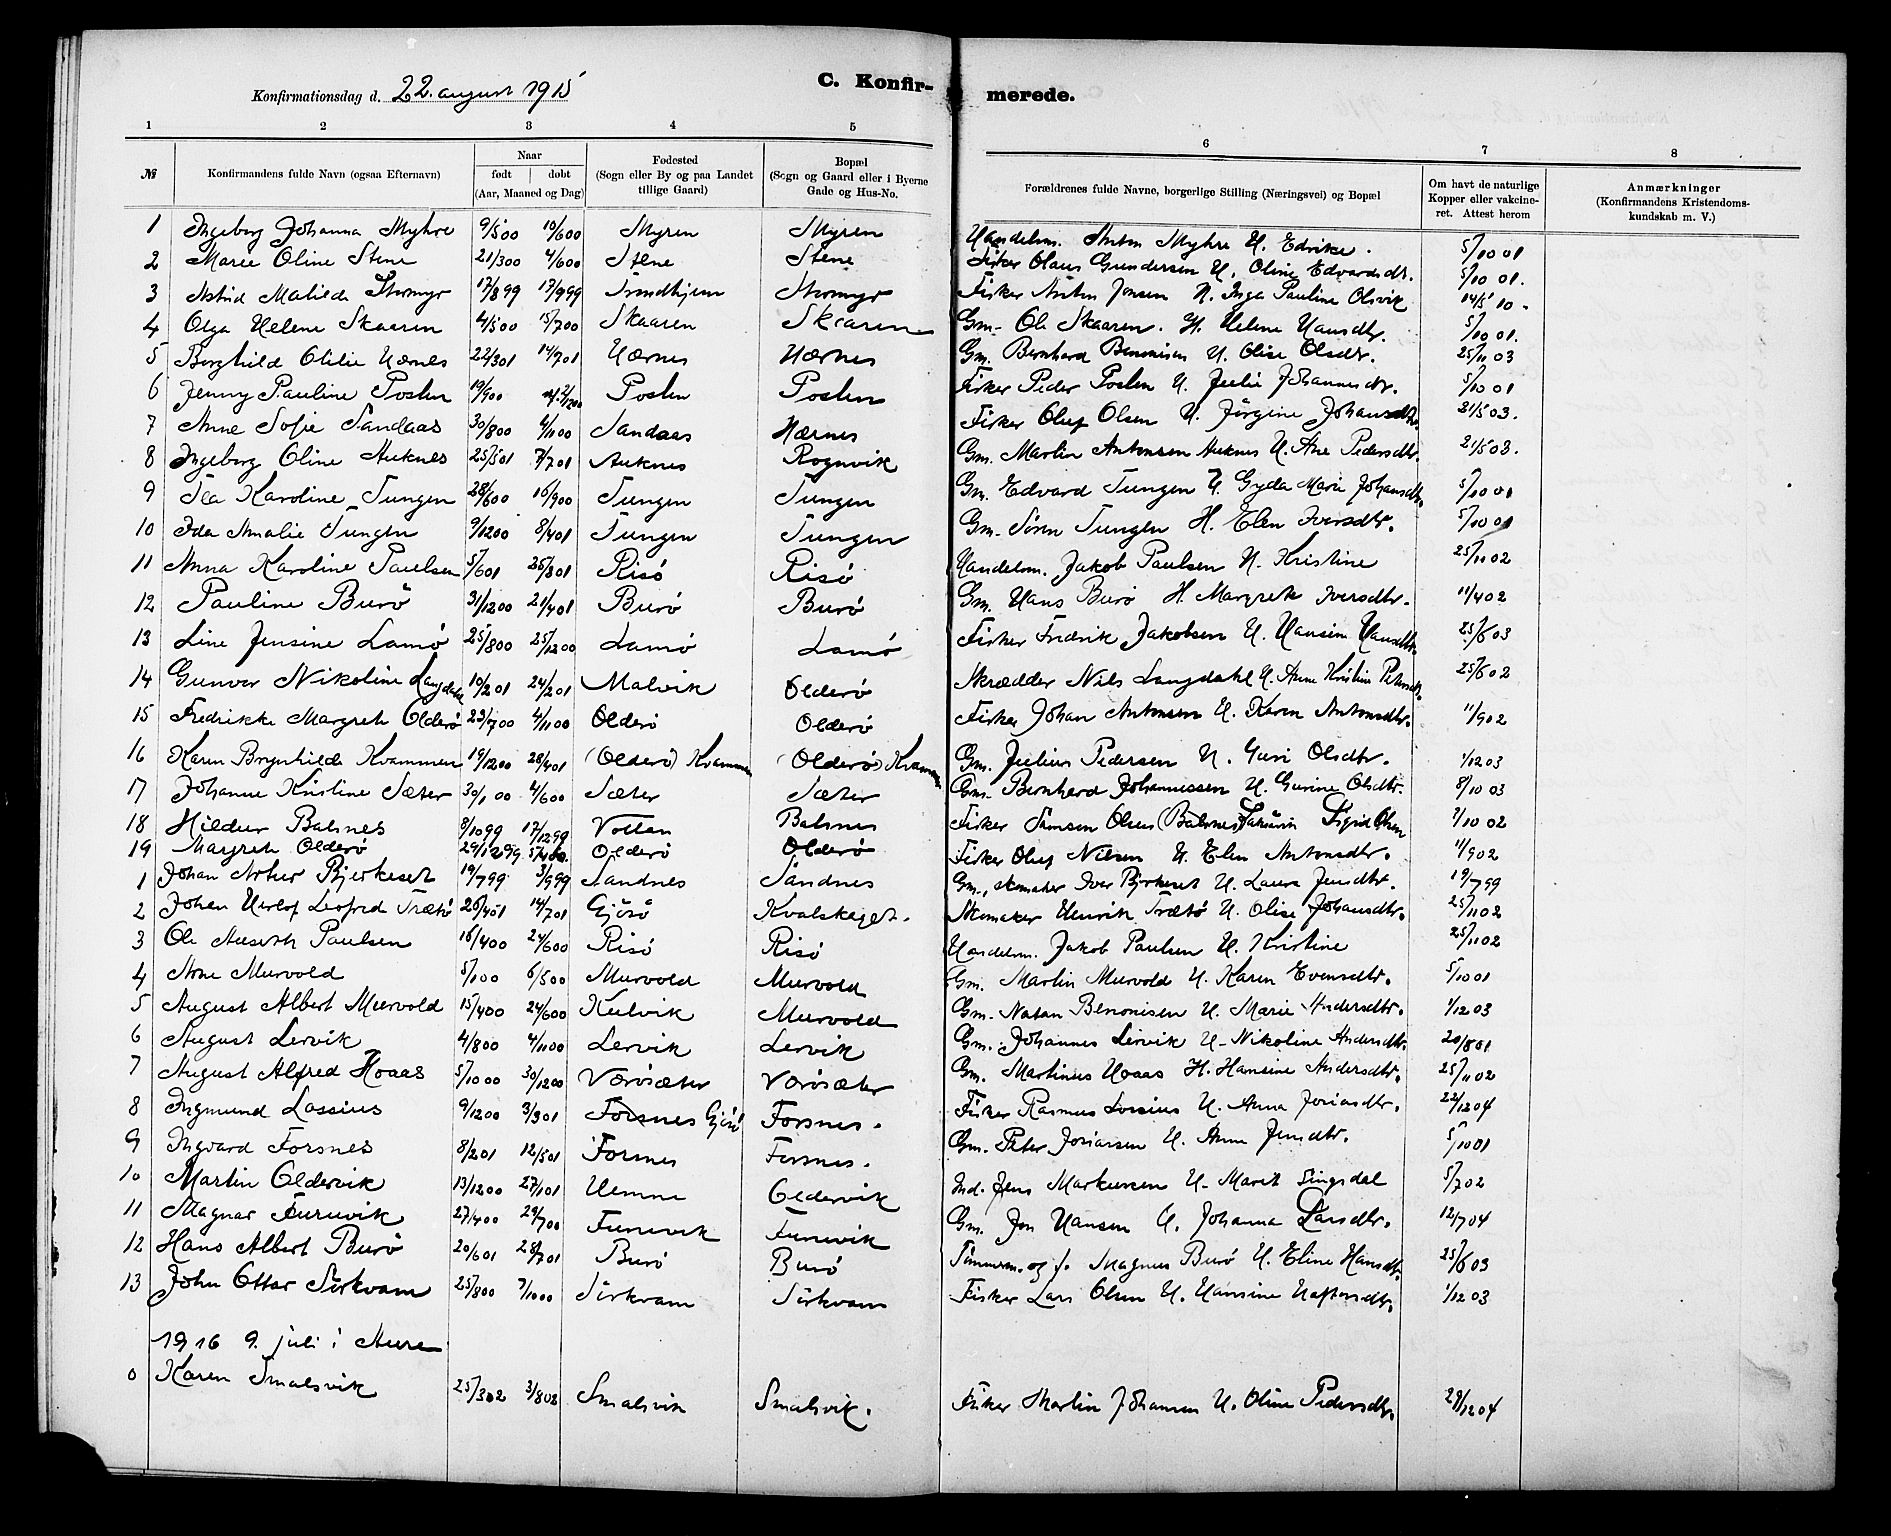 Konfirmationsdag d. 22. august 1915
C. Konfir-merede.
1 2 3 4 5 6 7 8
№ Konfirmandens fulde Navn (ogsaa Efternavn) Naar født døbt (Aar, Maaned og Dag) Fødested (Sogn eller By og paa Landet tillige Gaard) Bopæl (Sogn og Gaard eller i Byerne Gade og Hus-No. Forældrenes fulde Navne, borgerlige Stilling (Næringsvei) og Bopæl Om havt de naturlige Kopper eller vakcineret. Attest herom Anmærkninger (Konfirmandens Kristendomskundskab m. V.)
1 Ingeborg Johanna Myhre 9/5 00 10/6 00 Myren Myren Handelsm. Anton Myhre H. Edrike. 5/10 01
2 Marie Oline Stene 21/3 00 4/6 00 Stene Stene Fisker Olaus Gundersen H. Oline Edvardsdtr. 5/10 01.
3 Astrid Matilde 17/8 99 17/9 99 Trondhjem Fisker Anton Jensen H. Inga Pauline Olsvik 14/5 10.
4 Olga Helene Skaaren 4/5 00 15/7 00 Skaaren Skaaren Gm. Ole Skaaren. H. Helene Hansdtr. 5/10 01.
5 Borghild Otilie Hærnes 22/3 01 14/7 01 Hærnes Hærnes Gm. Bernhard Benonisen H. Olise Olsdtr. 25/11 03
6 Jenny Pauline Poslen 19/9 00 2/12 00 Poslen Poslen Fisker Peder Poslen H. Julie Johannesdtr. 5/10 01
7 Anne Sofie Sandaas 30/8 00 4/11 00 Sandaas Hærnes Fisker Oluf Olsen H. Jørgine Johansdtr. 21/5 03.
8 Ingeborg Oline Auknes 25/5 01 7/7 01 Auknes Rognvik Gm. Martin Antonsen Auknes H. Ane Pedersdtr. 21/5 03.
9 Karoline Tungen 28/6 00 16/9 00 Tungen Tungen Gm. Edvard Tungen H. Gyda Marie Johansdtr. 5/10 01
10 Ida Amalie Tungen 9/12 00 8/4 01 Tungen Tungen Gm. Søren Tungen H. Elen Iversdtr. 5/10 01
11 Anna Karoline Paulsen 5/6 01 25/8 01 Risø Risø Handelsm. Jakob Paulsen H. Kristine 25/11 02
12 Pauline Burø 31/12 00 21/4 01 Burø Burø Gm. Hans Burø H. Margrete Iversdtr. 11/4 02
13 Line Jensine Lamø 25/8 00 25/12 00 Lamø Lamø Fisker Fredrik Jakobsen H. Hansine Hansdtr. 25/6 03
14 Gunvor Nikoline Langdahl 10/2 01 24/2 01 Malvik Olderø Skrædder Nils Langdahl H. Anne Kristine Petersdtr. 25/6 02
15 Fredrikke Margrete Olderø 23/7 00 4/11 00 Olderø Olderø Fisker Johan Antonsen H. Karen Antonsdtr. 11/9 02
16 Karen Brynhilde Kvammen 19/12 00 28/4 01 (Olderø) Kvammen (Olderø) Kvammen Gm. Julius Pedersen H. Guri Olsdtr. 1/12 03
17 Johanne Kristine Sæter 30/1 00 4/6 00 Sæter Sæter Gm. Bernhard Johannessen H. Gurine Olsdtr. 8/10 03
18 Hildur Balsnes 8/10 99 17/12 99 Vollan Balsnes Fisker Samsen Olsen (Balsnes) Sigrid Olsen 2/10 02
19 Margrete Olderø 29/12 99 Olderø Olderø Fisker Oluf Nilsen H. Elen Antonsdtr. 11/9 02
1 Johan Artur Bjerkeset 19/7 99 3/9 99 Sandnes Sandnes Gm., skomaker Iver Bjerkeset H. Laura Jensdtr. 19/7 99
2 Johan Herlof Leofred Trætø 26/4 01 14/7 01 Gjøsø Kvalskaget. Skomaker Henrik Trætø H. Olise Johansdtr. 25/11 02
3 Ole Aaseth Paulsen 16/4 00 24/6 00 Risø Risø Handelsm. Jakob Paulsen H. Kristine 25/11 02
4 Arne Murvold 5/1 00 6/5 00 Murvold Murvold Gm. Martin Murvold H. Karen Evensdtr. 5/10 01
5 August Albert Murvold 15/4 00 24/6 00 Kulvik Murvold Gm. Natan Benonisen H. Marie Andersdtr. 1/12 03
6 August Lervik 4/8 00 4/11 00 Lervik Lervik Gm. Johannes Lervik H. Nikoline Andersdtr. 20/8 01
7 August Alfred Hoaas 5/10 00 30/12 00 Vorøsæter Vorøsæter Gm. Martinus Hoaas H. Hansine Andersdtr. 25/11 02
8 Ingmund Lossius 9/12 00 3/3 01 Forsnes Gjøsø Forsnes. Fisker Rasmus Lossius H. Anna Josiasdtr. 22/12 04
9 Ingvard Forsnes 8/2 01 12/5 01 Forsnes Forsnes. Gm. Peter Josiassen H. Anne Jensdtr. 5/10 01
10 Martin Oldervik 13/12 00 27/1 01 Hemne Oldervik Ind. Jens Markussen H. Marit Singsdal 5/7 02
11 Magnar Furuvik 27/4 00 29/7 00 Furuvik Furuvik Gm. Jon Hansen H. Johanna Larsdtr. 12/7 04
12 Hans Albert Burø 20/6 01 28/7 01 Burø Burø Tømmerm. og f. Magnus Burø H. Eline Hansdtr. 25/6 03
13 John Ottar Sørkvam 25/8 00 7/10 00 Sørkvam Sørkvam Fisker Lars Olsen H. Hansine Haftorsdtr. 1/12 03
1916 9. juli i Aure
0 Karen Smalsvik 25/3 02 3/8 02 Smalsvik Smalsvik. Fisker Martin Johansen H. Oline Pedersdtr. 29/12 04